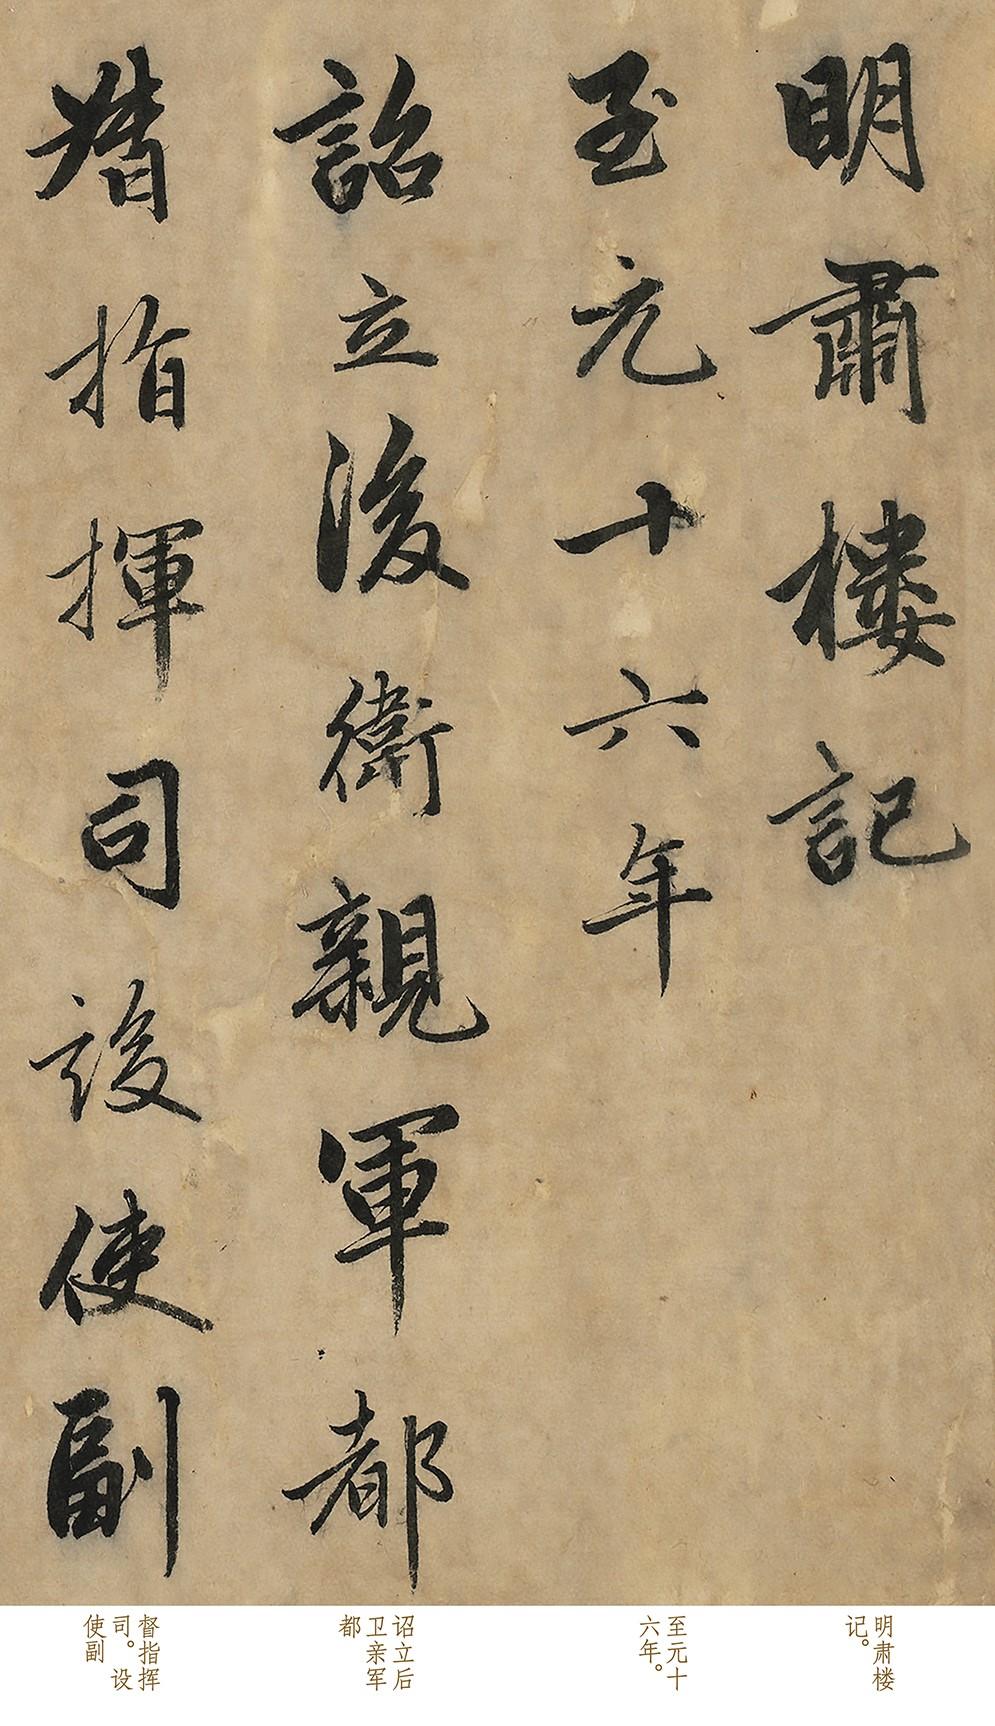 明肅樓記
至元十六年
詔立後衛親軍都
督指揮司設使副
明肃楼
记。
至元十
六年。
诏立后
卫亲军
都
督指挥
司。设
使副